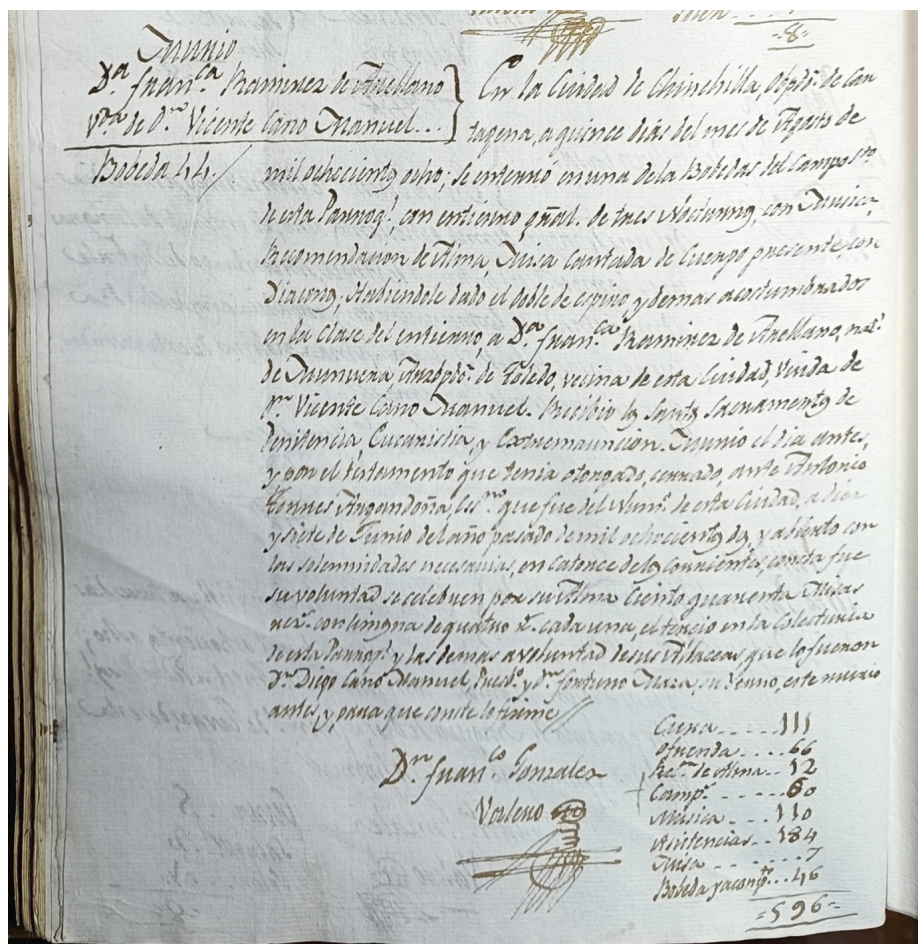 8
Murió
D.ª Fran.ca Ramirez de Arellano
v.da de D.n Vicente Cano Manuel...
Bobeda 44.
En la Ciudad de Chinchilla, Obpdo. de Car
tagena, a quince dias del mes de Agosto de
mil ochecientos ocho; se enterró en una de la Bobedas del Campo s.to
de esta Parroq.l, con entierro gñal. de tres Nocturnos, con Musica,
Recomendacion de Alma, Misa cantada de Cuerpo presente, con
Diaconos; Habiendole dado el doble de espiro y demas acostumbrados
en la clase del entierro, a D.ª Fran.ca Ramirez de Arellano, nat.l
de Arzbpdo. de Toledo, vecina de esta Ciudad, Viuda de
D.n Vicente Cano Manuel. Recibió los Santos Sacramentos de
Penitencia, Eucaristia, y Extremauncion. Murió el dia antes,
y por el testamento que tenia otorgado, cerrado, ante Antonio
Torres Argandoña, Ess.no que fue del Num.o de esta Ciudad, a diez
y siete de Junio del año pasado de mil ochocientos dos, y abierto con
las solemnidades necesarias, en catorce de los corrientes, consta fue
su voluntad se celebren por su Alma Ciento quarenta Misas
rez.s con limosna de quatro r.s cada una, el tercio en la Colecturia
de esta Parroq.l y las demas a voluntad de sus Albaceas que lo fueron
D.n Diego Cano Manuel, Presb.o y D.n Fortuno Meza, su Yerno, este murió
antes, y para que conste lo firmé
D.n Fran.co Gonzalez
Cura.....111
Ofrenda....66
Re.on de Alma..12
Camp.s......60
Musica....110
Asistencias..184
Misa.......7
Bobeda y acomp.to...46
=596=